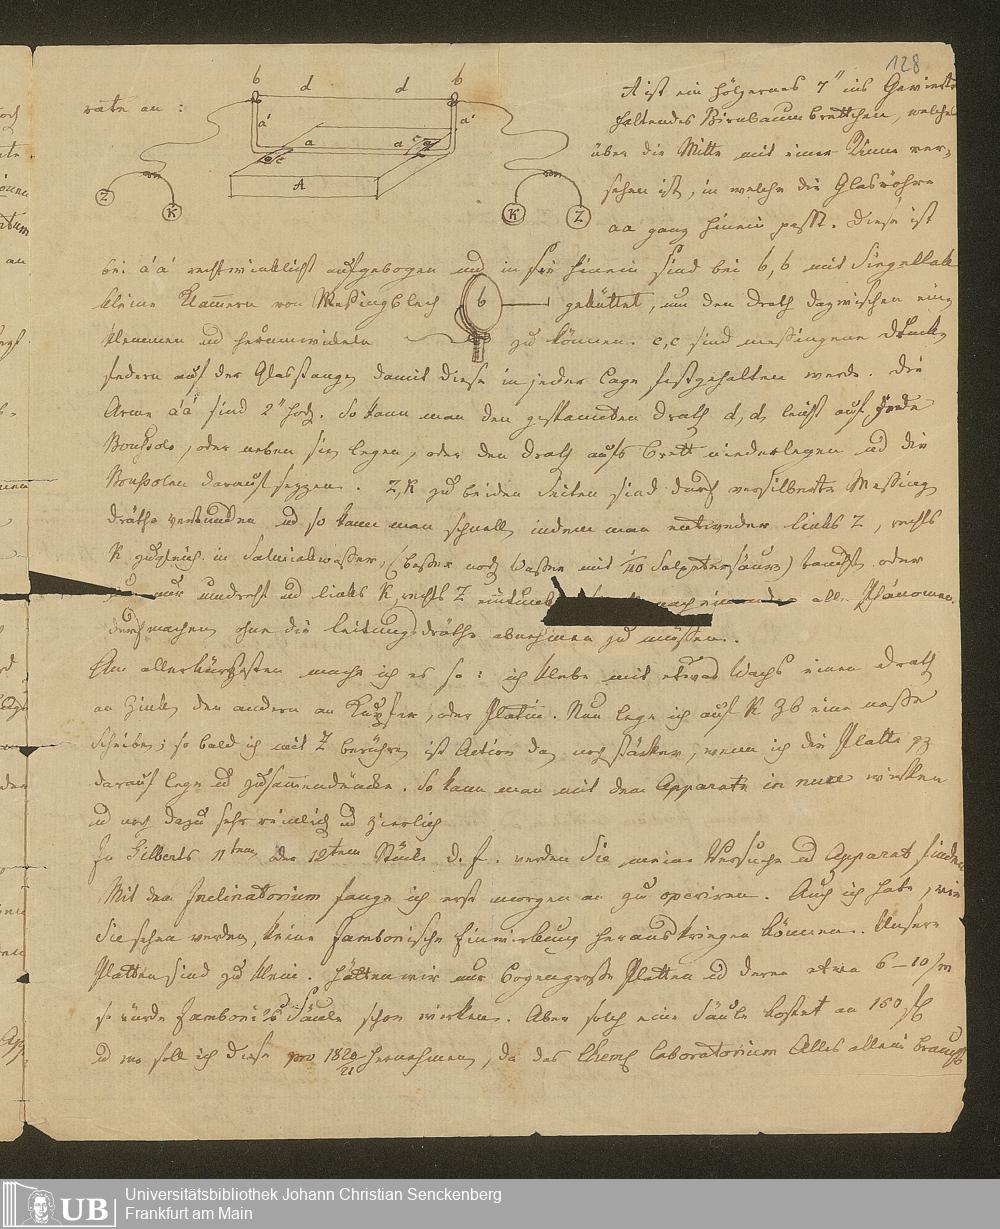 128
rate an :
b d d b
a' a a a' c c
A
Z K K Z
A ist ein hölzernes 7" ins Gevierte
haltendes Birnbaumbrettchen, welches
über die Mitte mit einer Rinne ver-
sehen ist, in welche die Glasröhre
aa ganz hinein passt. Diese ist
bei a'a' rechtwinklicht aufgebogen und in sie hinein sind bei b, b mit Siegellak
kleine Klam̅ern von Meßingblech b gekittet, um den Drath dazwischen ein
klemmen ud herumwickeln zu können. c,c sind meßingene Druck
federn auf der Glasstange damit diese in jeder Lage festgehalten werde. Die
Arme a'a' sind 2" hoch. So kann man den gespannten Drath d, d, leicht auf jede
Boußole, oder neben sie legen, oder den Drath aufs Brett niederlegen ud die
Boußolen darauf sezzen. Z, K zu beiden Seiten sind durch versilberte Meßing
dräthe verbunden ud so kann man schnell, indem man entweder links Z, rechts
K zugleich in Salmiakwaßer, (beßer noch Waßer mit 1/40 Salpetersäure) taucht, oder
nur umdreht ud links K, rechts Z eintaucht nach einander alle Phänomen
durchmachen, ohne die Leitungsdräthe abnehmen zu müßen.
Am allerkürzesten mache ich es so : ich klebe mit etwas Wachs einen Drath
an Zink, den andern an Kupfer, oder Platin. Nun lege ich auf K zb eine naße
Scheibe; so bald ich mit Z berühre, ist Action da, noch stärker, wenn ich die Platte gz
darauf lege ud zusam̅endrücke. So kann man mit dem Apparate in nuce wirken
ud noch dazu sehr reinlich ud zierlich
In Gilberts 11ten oder 12ten Stücke d. J. werden Sie meine Versuche ud Apparat finden
Mit dem Inclinatorium fange ich erst morgen an zu operiren. Auch ich habe, wie
Sie sehen werden, keine Zambonische Einwirkung herauskriegen können. Unsere
Platten sind zu klein. Hätten wir nur Bogengroße Platten ud deren etwa 6–10/m
so würde Zamboni's Säule schon wirken. Aber solch eine Säule kostet an 160
ud wo soll ich diese pro 1820/21 hernehmen, da das Chem. Laboratorium Alles allein braucht
UB
Universitätsbibliothek Johann Christian Senckenberg
Frankfurt am Main